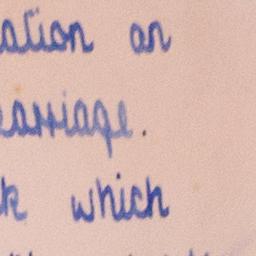 ation on
earriage.
k which